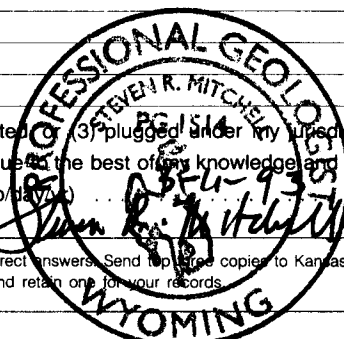 PROFESSIONAL GEOLOGIST
STEVEN R. MITCHELL
PG-1514
ted, or (3) plugged under my jurisdi
ue to the best of my knowledge and
o/day/yr)
Steven R. Mitchell
rrect answers. Send top three copies to Kansas
nd retain one for your records.
WYOMING